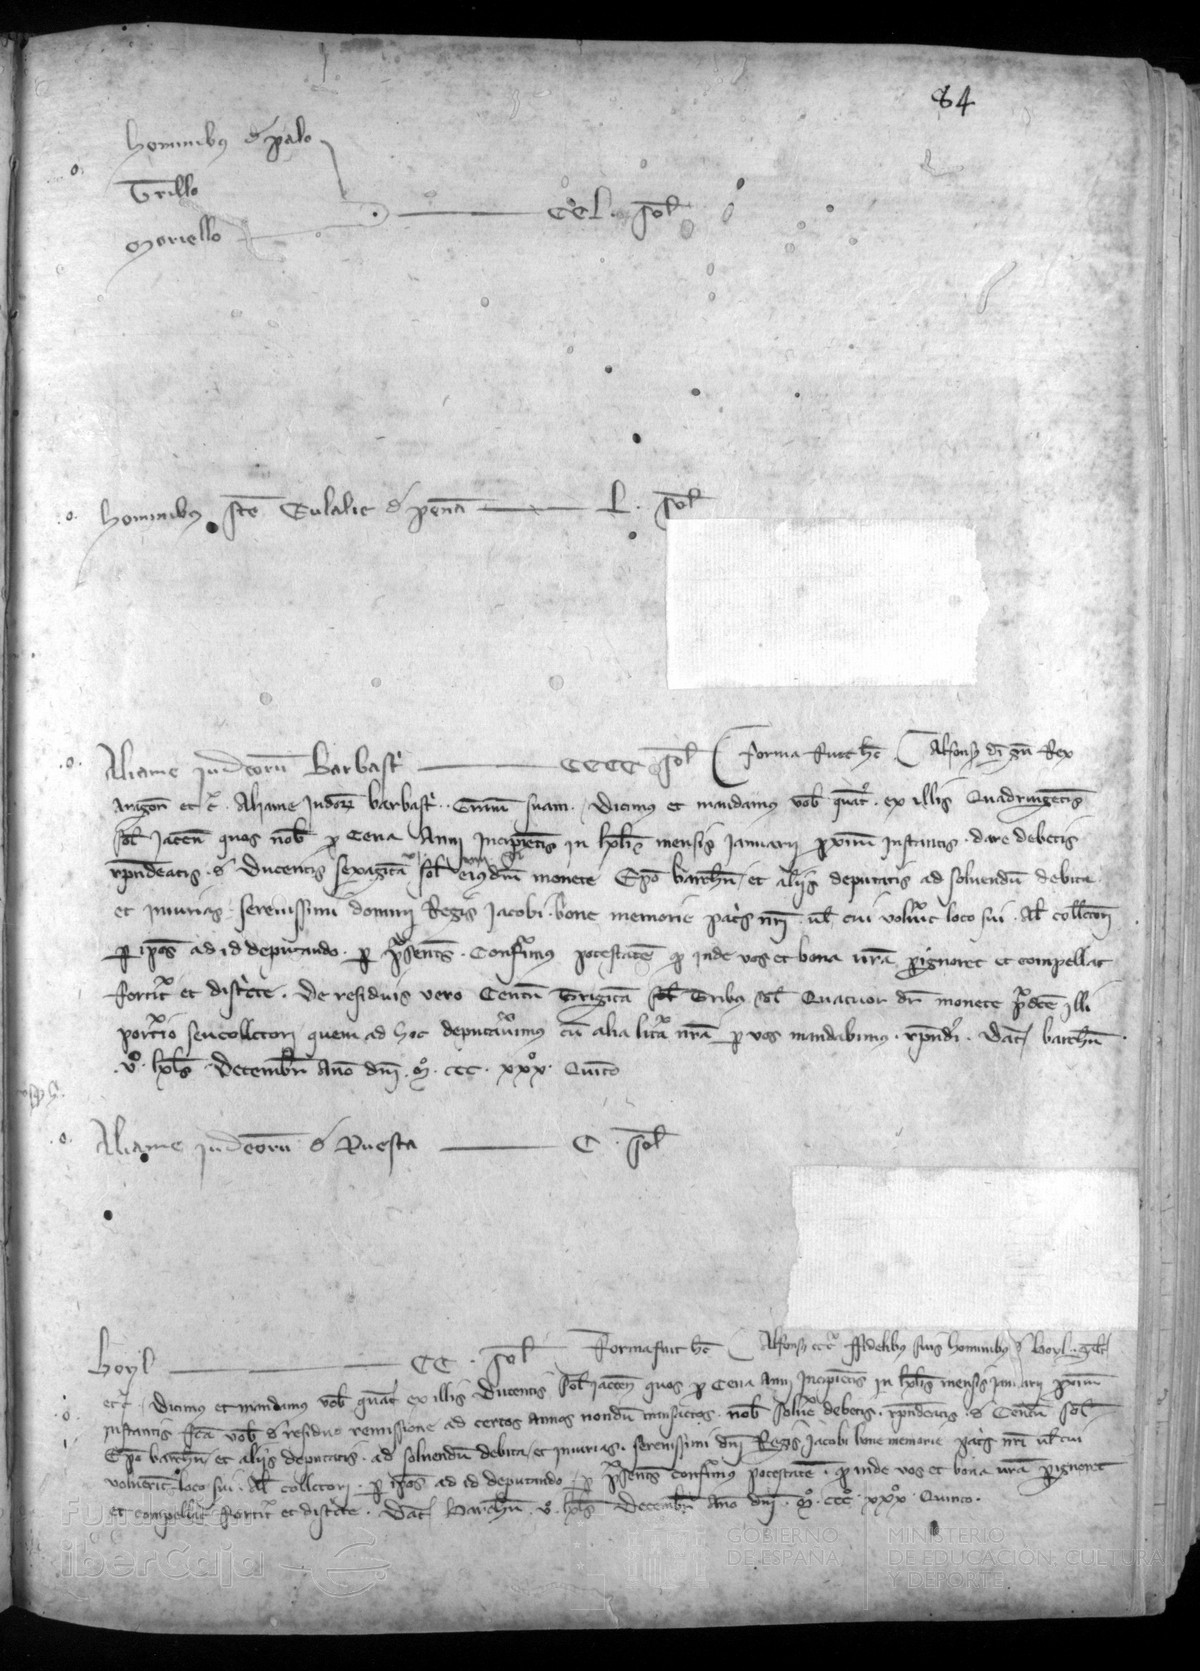 84
hominibus de palo
Trillo
moriello
CCL. sol
hominibus ste Eulalie de pena L. sol
Aliame judeorum Barbastri CCCC sol forma fuit hec Alfonsus di gra Rex
Aragon etc. Aliame Judeorum barbastri. suam. Dicimus et mandamus vob quatr. ex illis Quadringentis
sol Jaccen quos nob p Cena Anni Incipientis in kls mensis Januarii proxim instantis. dare debetis
rpndeatis. de Ducentis sexaginta sol eiusdm monete Epo barchn. et aliis deputatis ad solvendum debita
et iniurias. serenissimi domini Regis Jacobi. bone memorie patris nri. vl cui voluerit loco sui. Al collctori
p ipos ad id deputando. p psentes. Conferimus potestatem qd inde vos et bona vra pignoret et compellat
fortiter et districte. De residuis vero Centum Triginta sol Tribus sol Quatuor dr monete pdce illi
portario seu collctori quem ad hoc deputaverimus cum alia litera nra p vos mandabimus. rpnderi. Dat barchn.
.vo. kls Decembr Ano dni. mo. ccc. xxxo. Quinto
Aliame judeorum de Ruesta C. sol
Boyl CC. sol Forma fuit hec Alfonsus etc ffidelibus suis hominibus de Boyl. salt
etc. Dicimus et mandamus vob quatr ex illis Ducentis sol Jaccen quos p Cena Anni Incipientis in kls mensis januarii proxim
instantis fca vob de residuo remissione ad certos annos nondum transactos. nob solvere debetis. rpndeatis. de Centum sol
Epo barchn et aliis deputatis. ad solvendum debita et iniurias. serenissimi dni Regis Jacobi bone memorie patris nri vl cui
voluerit loco sui. Al collctori. p ipos ad id deputando. p psentes conferimus potestatem. qd inde vos et bona vra pignoret
et compellat fortiter et districte. Dat Barchn. vo. kls Decembr Ano dni. mo. ccco. xxxo. Quinto.
Fundación
iberCaja
GOBIERNO
DE ESPAÑA
MINISTERIO
DE EDUCACIÓN, CULTURA
Y DEPORTE